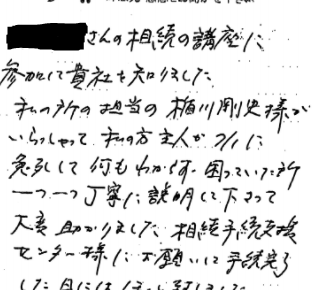 さんの相続の講座に
参加して貴社を知りました
私の所の担当の 楯川剛史様が
いらっしゃって 私の方 主人が 7/1に
急死して何もわからず 困っていた所
一つ一つ丁寧に説明して下さって
大変助かりました 相続手続支援
センター様にお願いして手続完了
した